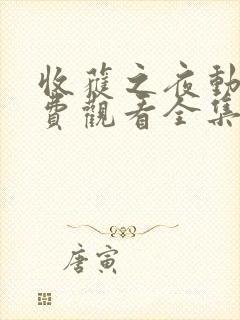 收穫之夜動
費觀看全集
唐寅